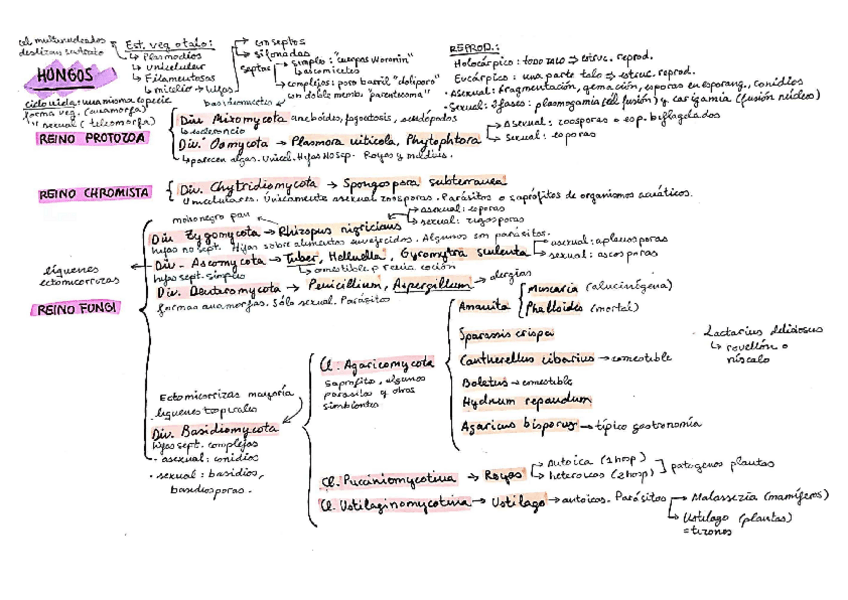 cel multinucleadas
deslizan sustrato
Est. veg o talo:
↳ Plasmodios
↳ Unicelular
↳ Filamentosas
↳ micelio → hifas
→ con septos
→ sifonadas
septos
→ simples: "cuerpos Woronin"
↳ ascomicetes
→ complejos: poro barril "doliporo"
con doble memb. "parentosoma"
basidiomicetes
REPROD.:
Holocárpico: todo talo ⇒ estruc. reprod.
Eucárpico: una parte talo ⇒ estruc. reprod.
· Asexual: fragmentación, gemación, esporas en esporang., conidios
· Sexual: 3 fases: plasmogamia (cel fusión) y cariogamia (fusión núcleo)
HONGOS
ciclo vida: una misma especie
forma veg. (anamorfa)
" sexual (teleomorfa)
REINO PROTOZOA
Div. Mixomycota ameboides, fagocitosis, seudópodos
Div. Oomycota → Plasmora viticola, Phytophtora
→ Asexual: zoosporas o esp. biflagelados
→ Sexual: oosporas
↳ parecen algas. Unicel. Hifas no sep. Royas y mildius.
REINO CHROMISTA
Div. Chytridiomycota → Spongospora subterranea
Unicelulares. Únicamente asexual zoosporas. Parásitos o saprófitos de organismos acuáticos.
REINO FUNGI
moho negro pan
Div. Zygomycota → Rhizopus nigricians
→ asexual: esporas
→ sexual: zigosporas
hifas no sept. Hifas sobre alimentos envejecidos. Algunos son parásitos.
líquenes
ectomicorrizas
Div. Ascomycota → Tuber, Helluella, Gyromytra sculenta
→ asexual: aplanosporas
→ sexual: ascosporas
hifas sept. simples
↳ comestible previa coción
Div. Deuteromycota → Penicillium, Aspergillum → alergias
formas anamorfas. Sólo sexual. Parásitos
Ectomicorrizas mayoría
líquenes tropicales
Div. Basidiomycota
hifas sept. complejos
· asexual: conidios
· sexual: basidios,
basidiosporas.
Cl. Agaricomycota
saprofito, algunos
parasitos y otros
simbiontes
Amanita
Muscaria (alucinógena)
Phalloides (mortal)
Sparassis crispa
Cantherellus cibarius → comestible
Boletus → comestible
Hydnum repandum
Agaricus bisporus → típico gastronomía
Lactarius deliciosus
↳ rovellón o
níscalo
Cl. Pucciniomycotina → Royas
→ Autoica (1 hosp)
→ heteroicas (2 hosp)
patógenos plantas
Cl. Ustilaginomycotina → Ustilago → autoicos. Parásitos
→ Malassezia (mamíferos)
→ Ustilago (plantas)
= tizones